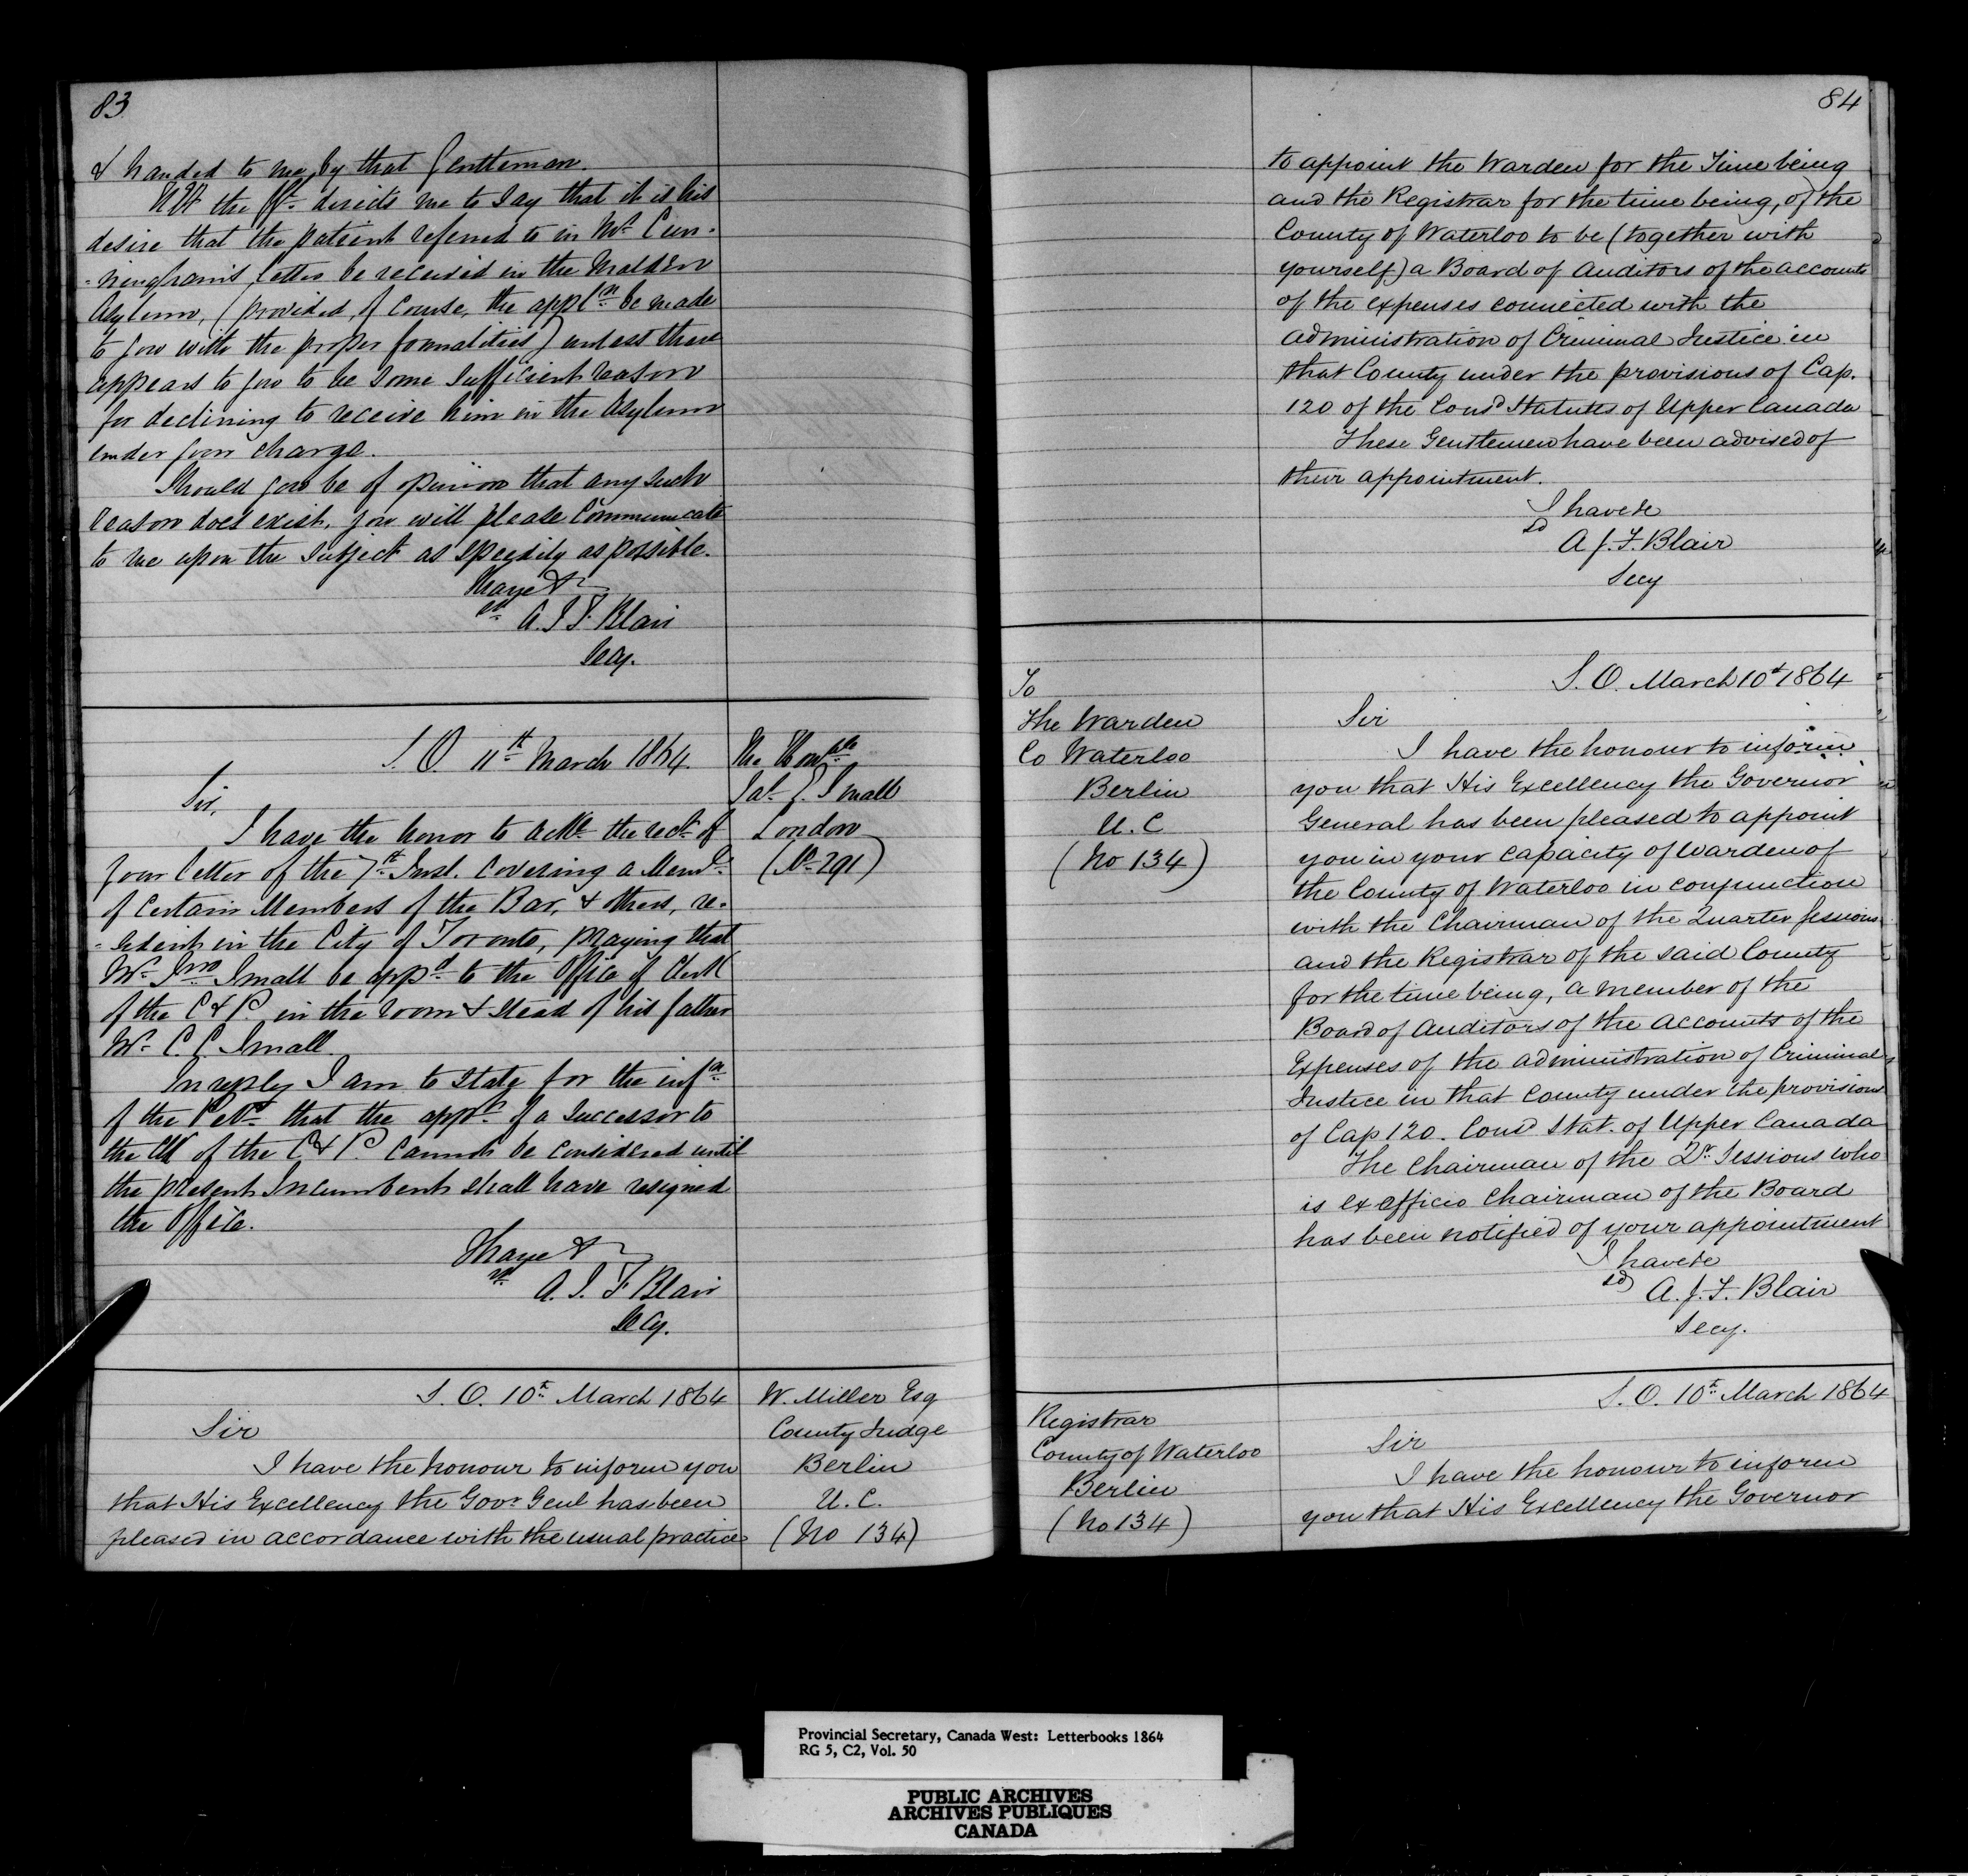 83
& handed to me by that Gentleman.
H E the directs me to say that it is his
desire that the patient referred to in Mr Cun-
-ningham's letter be received in the Malden
Asylum, (provided, of course, the appln be made
to you with the proper formalities) unless there
appears to you to be some sufficient reason
for declining to receive him in the Asylum
under your charge.
Should you be of opinion that any such
reason does exist, you will please communicate
to me upon the subject as speedily as possible.
I have &
sd A. J. F. Blair
Secy.
S. O. 11th March 1864.
The Honble
Jas. E. Small
London
(No 291)
Sir,
I have the honor to acke the rect of
your letter of the 7th Inst. covering a Meml
of certain Members of the Bar, & others, re-
-sident in the City of Toronto, praying that
Mr Jno Small be appd to the Office of Clerk
of the C & P. in the room & stead of his father
Mr C. C. Small.
In reply I am to state for the infn
of the that the appt of a successor to
the Clk of the C & P. cannot be considered until
the present Incumbent shall have resigned
the Office.
I have &
sd A. J. F. Blair
Secy.
S. O. 10th March 1864
W. Miller Esq
County Judge
Berlin
U. C.
(No 134)
Sir
I have the honour to inform you
that His Excellency the Govr Genl has been
pleased in accordance with the usual practice
84
to appoint the Warden for the Time being
and the Registrar for the time being, of the
County of Waterloo to be (together with
yourself) a Board of Auditors of the accounts
of the expenses connected with the
administration of Criminal Justice in
that County under the provisions of Cap.
120 of the Consd Statutes of Upper Canada
These Gentlemen have been advised of
their appointment.
I have &c
sd
A. J. F. Blair
Secy
To
The Warden
Co Waterloo
Berlin
U. C
(No 134)
S. O. March 10th 1864
Sir
I have the honour to inform
you that His Excellency the Governor
General has been pleased to appoint
you in your capacity of Warden of
the County of Waterloo in conjunction
with the Chairman of the Quarter Sessions
and the Registrar of the said County
for the time being, a member of the
Board of Auditors of the accounts of the
Expenses of the administration of Criminal
Justice in that County under the provisions
of Cap 120. Consd Stat. of Upper Canada
The Chairman of the Qr Sessions who
is ex officio Chairman of the Board
has been notified of your appointment
I have &c
sd A. J. F. Blair
Secy.
Registrar
County of Waterloo
Berlin
(No 134)
S. O. 10th March 1864
Sir
I have the honour to inform
you that His Excellency the Governor
Provincial Secretary, Canada West: Letterbooks 1864
RG 5, C2, Vol. 50
PUBLIC ARCHIVES
ARCHIVES PUBLIQUES
CANADA